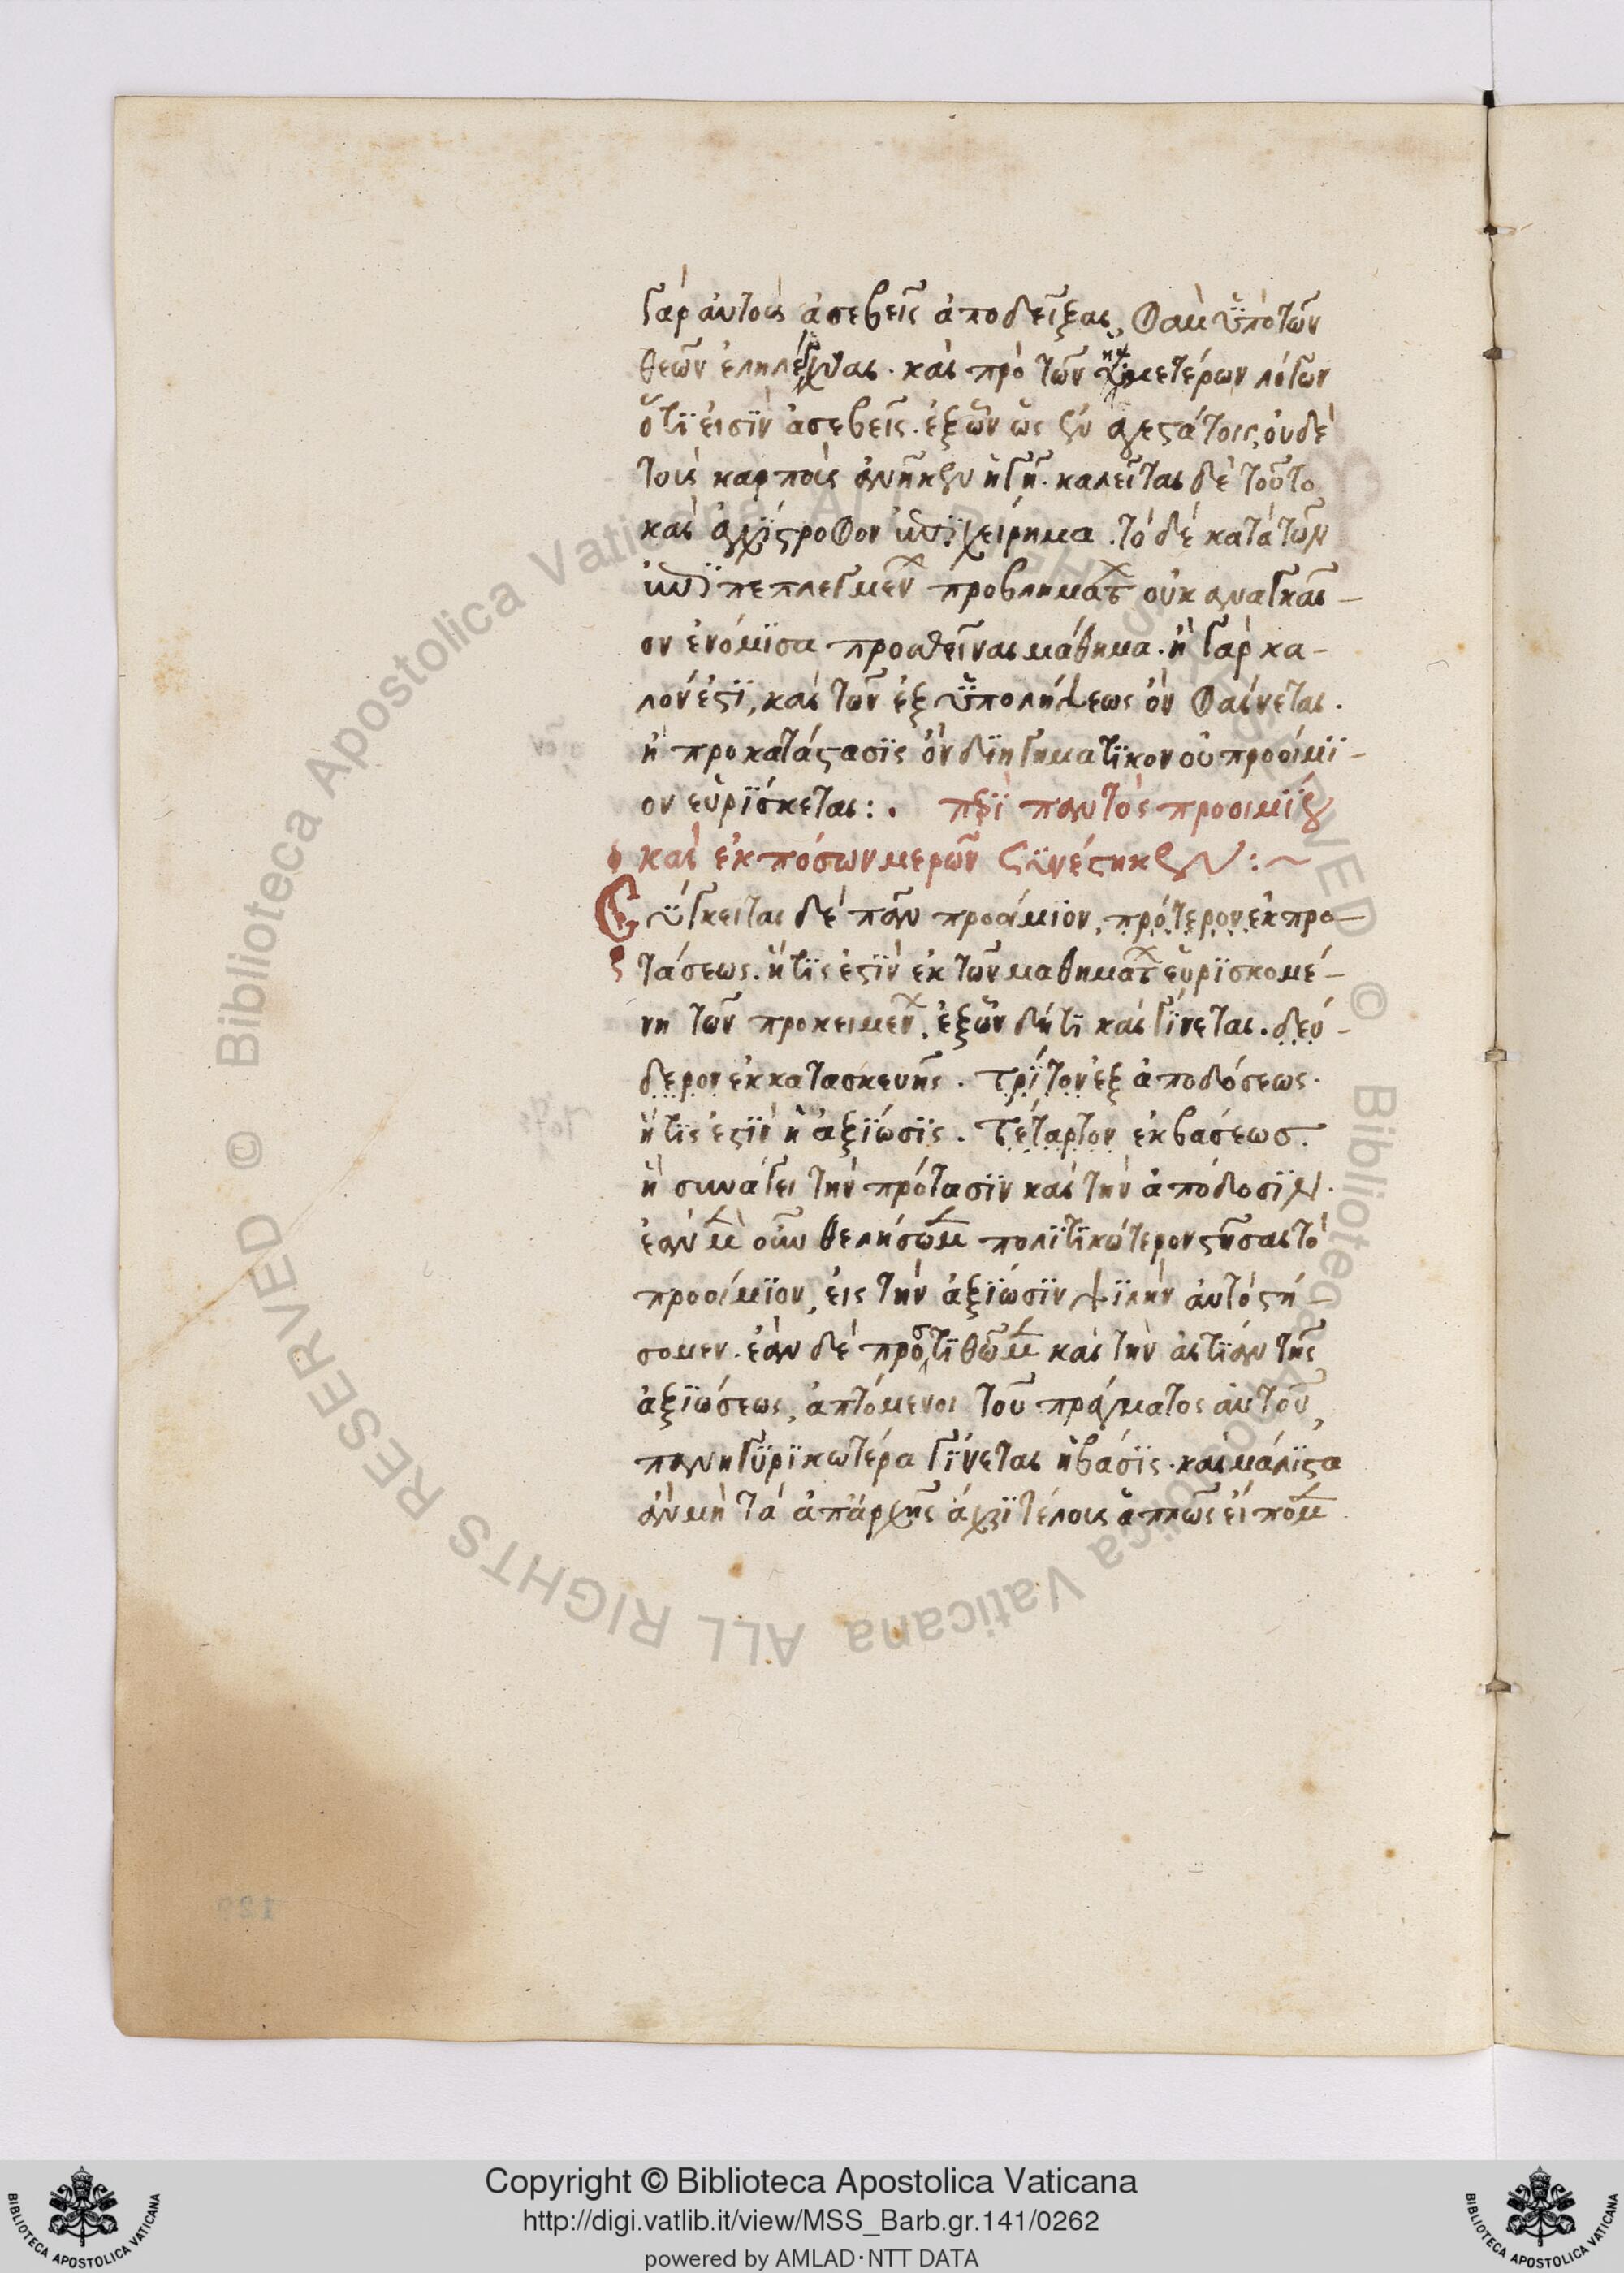 γὰρ αὐτοὺς ἀσεβεῖς ἀποδεῖξαι, φαμὲν ὑπὸ τῶν
θεῶν ἐληλέγχθαι. καὶ πρὸ τῶν ἡμετέρων λόγων
ὅτι εἰσὶν ἀσεβεῖς. ἐξ ὧν ὡς
τοὺς καρποὺς ἀνῆκεν ἡ γῆ. καλεῖται δὲ τοῦτο
καὶ ἀντίστροφον ἐπιχείρημα. τὸ δὲ κατὰ τῶν
ἐπιπεπλεγμένων προβλημάτων οὐκ ἀναγκαῖ-
ον ἐνόμισα προσθεῖναι μάθημα. ἢ γὰρ κα-
λόν ἐστι, καὶ τῶν ἐξ ὑπολήψεως ὂν φαίνεται.
ἢ προκατάστασις ὂν διηγηματικὸν οὐ προοίμι-
ον εὑρίσκεται:. περὶ παντὸς προοιμίου
καὶ ἐκ πόσων μερῶν συνέστηκεν:~
Σύγκειται δὲ πᾶν προοίμιον, πρότερον ἐκ προ-
τάσεως. ἥτις ἐστὶν ἐκ τῶν μαθημάτων εὑρισκομέ-
νη τῶν προκειμένων, ἐξ ὧν δή τι καὶ γίνεται. δεύ-
δερον ἐκ κατασκευῆς. τρίτον ἐξ ἀποδόσεως.
ἥτις ἐστὶ ἡ ἀξίωσις. τέταρτον ἐκβάσεως.
ἣ συνάγει τὴν πρότασιν καὶ τὴν ἀπόδοσιν.
ἐὰν μὲν οὖν θελήσωμεν πολιτικώτερον στῆσαι τὸ
προοίμιον, εἰς τὴν ἀξίωσιν ψιλὴν αὐτὸ στή-
σομεν. ἐὰν δὲ προστιθῶμεν καὶ τὴν αἰτίαν τῆς
ἀξιώσεως, ἁπτόμενοι τοῦ πράγματος αὐτοῦ,
πανηγυρικωτέρα γίνεται ἡ βάσις. καὶ μάλιστα
ἂν μὴ τὰ ἀπ' ἀρχῆς ἄχρι τέλους ἁπλῶς εἴπομεν
Copyright © Biblioteca Apostolica Vaticana
http://digi.vatlib.it/view/MSS_Barb.gr.141/0262
powered by AMLAD·NTT DATA
© Biblioteca Apostolica Vaticana ALL RIGHTS RESERVED
© Biblioteca Apostolica Vaticana ALL RIGHTS RESERVED
BIBLIOTECA APOSTOLICA VATICANA
BIBLIOTECA APOSTOLICA VATICANA